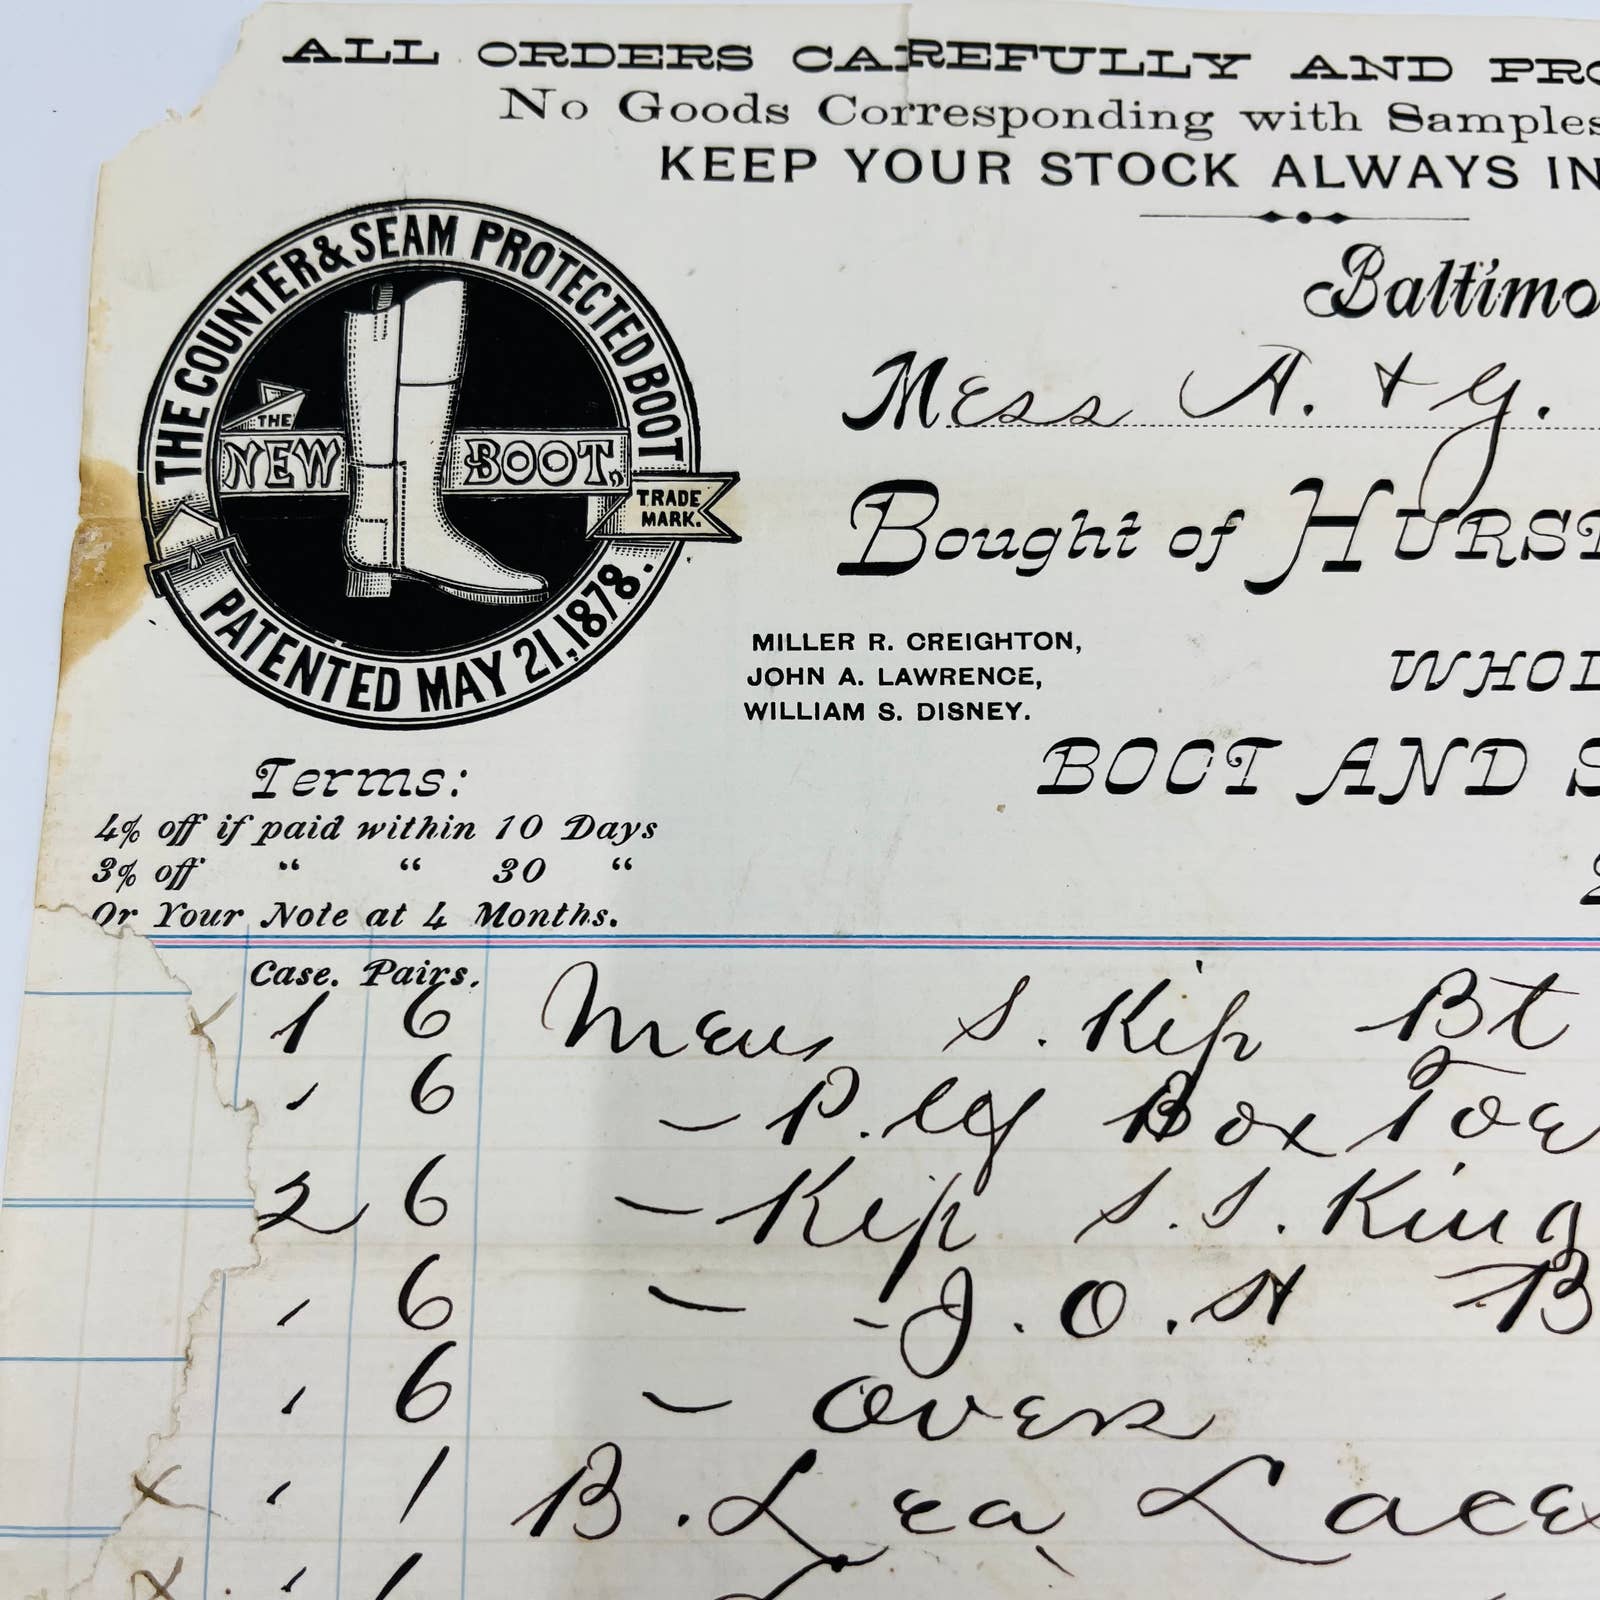 ALL ORDERS CAREFULLY AND PRO
No Goods Corresponding with Samples
KEEP YOUR STOCK ALWAYS IN
THE COUNTER & SEAM PROTECTED BOOT
THE
NEW BOOT,
TRADE
MARK.
PATENTED MAY 21, 1878.
Baltimo
Mess A. & G.
Bought of HURS
MILLER R. CREIGHTON,
JOHN A. LAWRENCE,
WILLIAM S. DISNEY.
WHOL
BOOT AND S
Terms:
4% off if paid within 10 Days
3% off “ “ 30 “
Or Your Note at 4 Months.
Case. Pairs.
1 6 Mens S. Kip Bt
6 P. Box Toe
2 6 Kip S. S. King
6 J. O. B
6 Over
1 B. Lea Lace